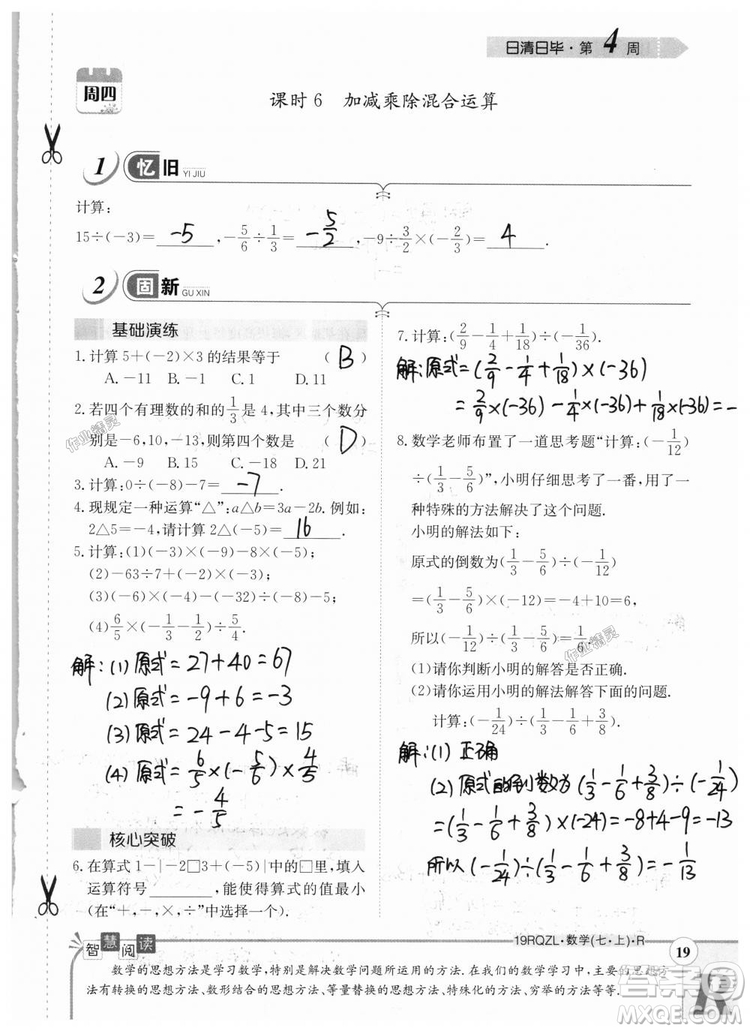 日清日毕·第4周
周四
课时6 加减乘除混合运算
1 忆旧 YI JIU
计算:
15÷(-3)= -5 ,-5/6÷1/3= -5/2 ,-9÷3/2×(-2/3)= 4 .
2 固新 GU XIN
基础演练
1.计算5+(-2)×3的结果等于 ( B )
A.-11 B.-1 C.1 D.11
2.若四个有理数的和的1/3是4,其中三个数分
别是-6,10,-13,则第四个数是 ( D )
A.-9 B.-18 C.13 D.21
3.计算:0÷(-8)-7= -7 .
4.现规定一种运算“△”:a△b=3a-2b.例如:
2△5=-4,请计算2△(-5)= 16 .
5.计算:(1)(-3)×(-9)-8×(-5);
(2)-63÷7+(-2)×(-3);
(3)(-4)×(-6)-(-32)÷(-8)-5;
(4)6/5×(-1/3-1/2)÷5/4.
解:(1)原式=27+40=67
(2)原式=-9+6=-3
(3)原式=24-4-5=15
(4)原式=6/5×(-5/6)×4/5
=-4/5
核心突破
6.在算式1-|-2□3+(-5)|中的□里,填入
运算符号 ,能使得算式的值最小
(在“+,-,×,÷”中选择一个).
7.计算:(2/9-1/4+1/18)÷(-1/36).
解:原式=(2/9-1/4+1/18)×(-36)
=2/9×(-36)-1/4×(-36)+1/18×(-36)
8.数学老师布置了一道思考题“计算:(-1/12)
÷(1/3-5/6)”,小明仔细思考了一番,用了一
种特殊的方法解决了这个问题.
小明的解法如下:
原式的倒数为(1/3-5/6)÷(-1/12)
=(1/3-5/6)×(-12)=-4+10=6,
所以(-1/12)÷(1/3-5/6)=1/6.
(1)请你判断小明的解答是否正确.
(2)请你运用小明的解法解答下面的问题.
计算:(-1/24)÷(1/3-1/6+3/8).
解:(1)正确
(2)原式的倒数为(1/3-1/6+3/8)÷(-1/24)
=(1/3-1/6+3/8)×(-24)=-8+4-9=-13
所以(-1/24)÷(1/3-1/6+3/8)=-1/13
智慧阅读
19RQZL·数学(七·上)·R
19
数学的思想方法是学习数学,特别是解决数学问题所运用的方法.在我们的数学学习中,主要的思想方
法有转换的思想方法、数形结合的思想方法、等量替换的思想方法、特殊化的方法、穷举的方法等等.
作业精灵
作业精灵